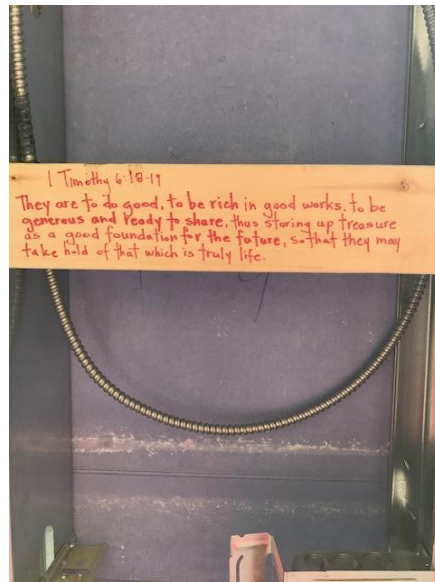 1 Timothy 6:18-19
They are to do good, to be rich in good works, to be
generous and ready to share, thus storing up treasure
as a good foundation for the future, so that they may
take hold of that which is truly life.